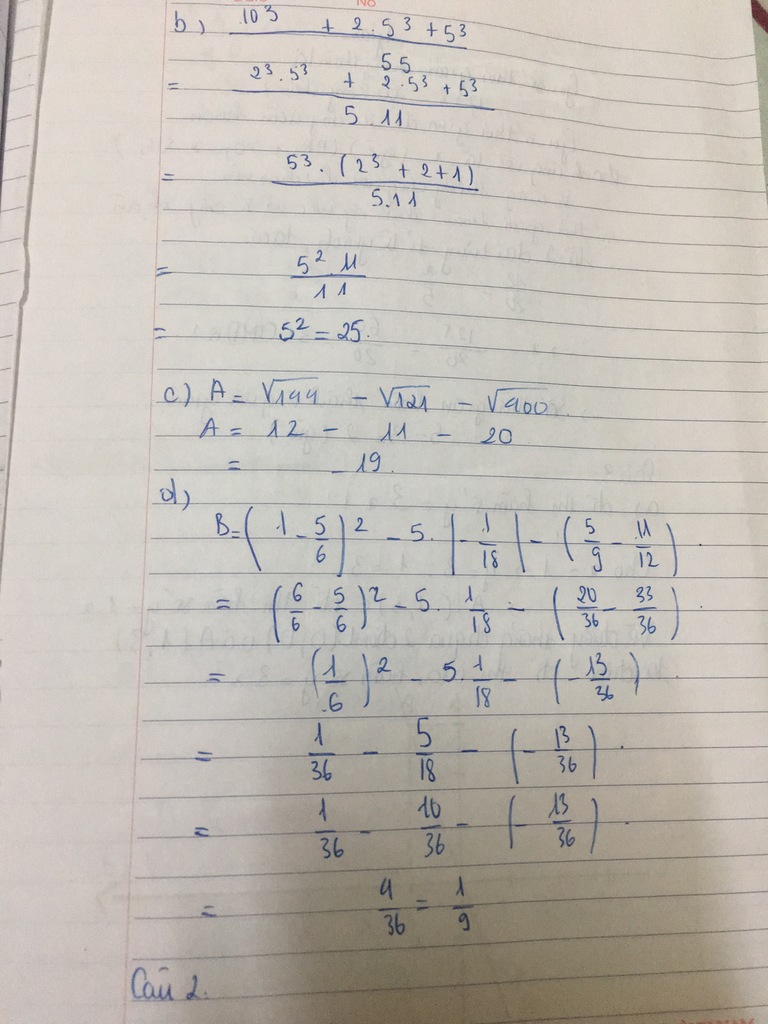 b) (10³ + 2.5³ + 5³)/55
= (2³.5³ + 2.5³ + 5³)/(5.11)
= 5³.(2³ + 2 + 1)/(5.11)
= (5².11)/11
= 5² = 25.
c) A = √144 - √121 - √400.
A = 12 - 11 - 20
= -19.
d)
B = (1 - 5/6)² - 5.|-1/18| - (5/9 - 11/12).
= (6/6 - 5/6)² - 5.1/18 - (20/36 - 33/36).
= (1/6)² - 5.1/18 - (-13/36).
= 1/36 - 5/18 - (-13/36).
= 1/36 - 10/36 - (-13/36).
= 4/36 = 1/9
Câu 2.